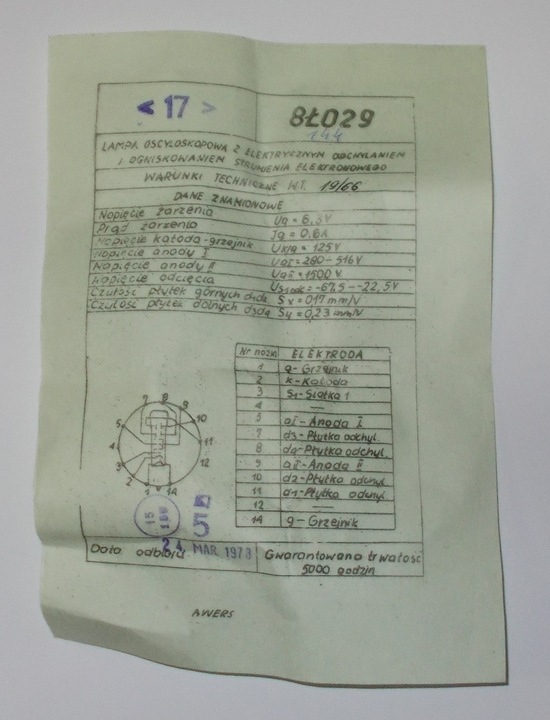 < 17 >
8ŁO29
144
LAMPA OSCYLOSKOPOWA Z ELEKTRYCZNYM ODCHYLANIEM
I OGNISKOWANIEM STRUMIENIA ELEKTRONOWEGO
WARUNKI TECHNICZNE WT. 19/66
DANE ZNAMIONOWE
Napięcie żarzenia Uż = 6,3V
Prąd żarzenia Iż = 0.6A
Napięcie katoda-grzejnik Uk/g = 125V
Napięcie anody I UaI = 280-516V
Napięcie anody II UaII = 1500 V
Napięcie odcięcia = -67,5 - -22,5V
Czułość płytek górnych Sx = 0,17 mm/V
Czułość płytek dolnych Sy = 0,23 mm/V
Nr nóżki ELEKTRODA
1 g - Grzejnik
2 k - Katoda
3 S1 - Siatka 1
4 —
5 aI - Anoda I
7 d3 - Płytka odchyl.
8 d4 - Płytka odchyl.
9 aII - Anoda II
10 d2 - Płytka odchyl.
11 d1 - Płytka odchyl.
12 —
14 g - Grzejnik
7 8 9
5 10
4 11
3 12
2
1 14
15
Data odbioru 24 MAR 1973
Gwarantowana trwałość
5000 godzin
AWERS